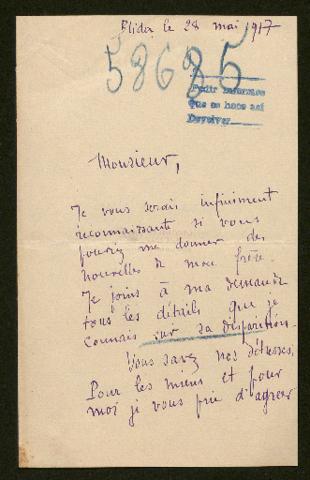 Blida, le 28 mai 1917
58685
Pedir informes
Que se hace así
Devolver
Monsieur,
Je vous serais infiniment
reconnaissante si vous
pouviez me donner des
nouvelles de mon frère.
Je joins à ma demande
tous les détails que je
connais sur sa disparition.
Vous savez nos détresses.
Pour les miens et pour
moi je vous prie d'agréer